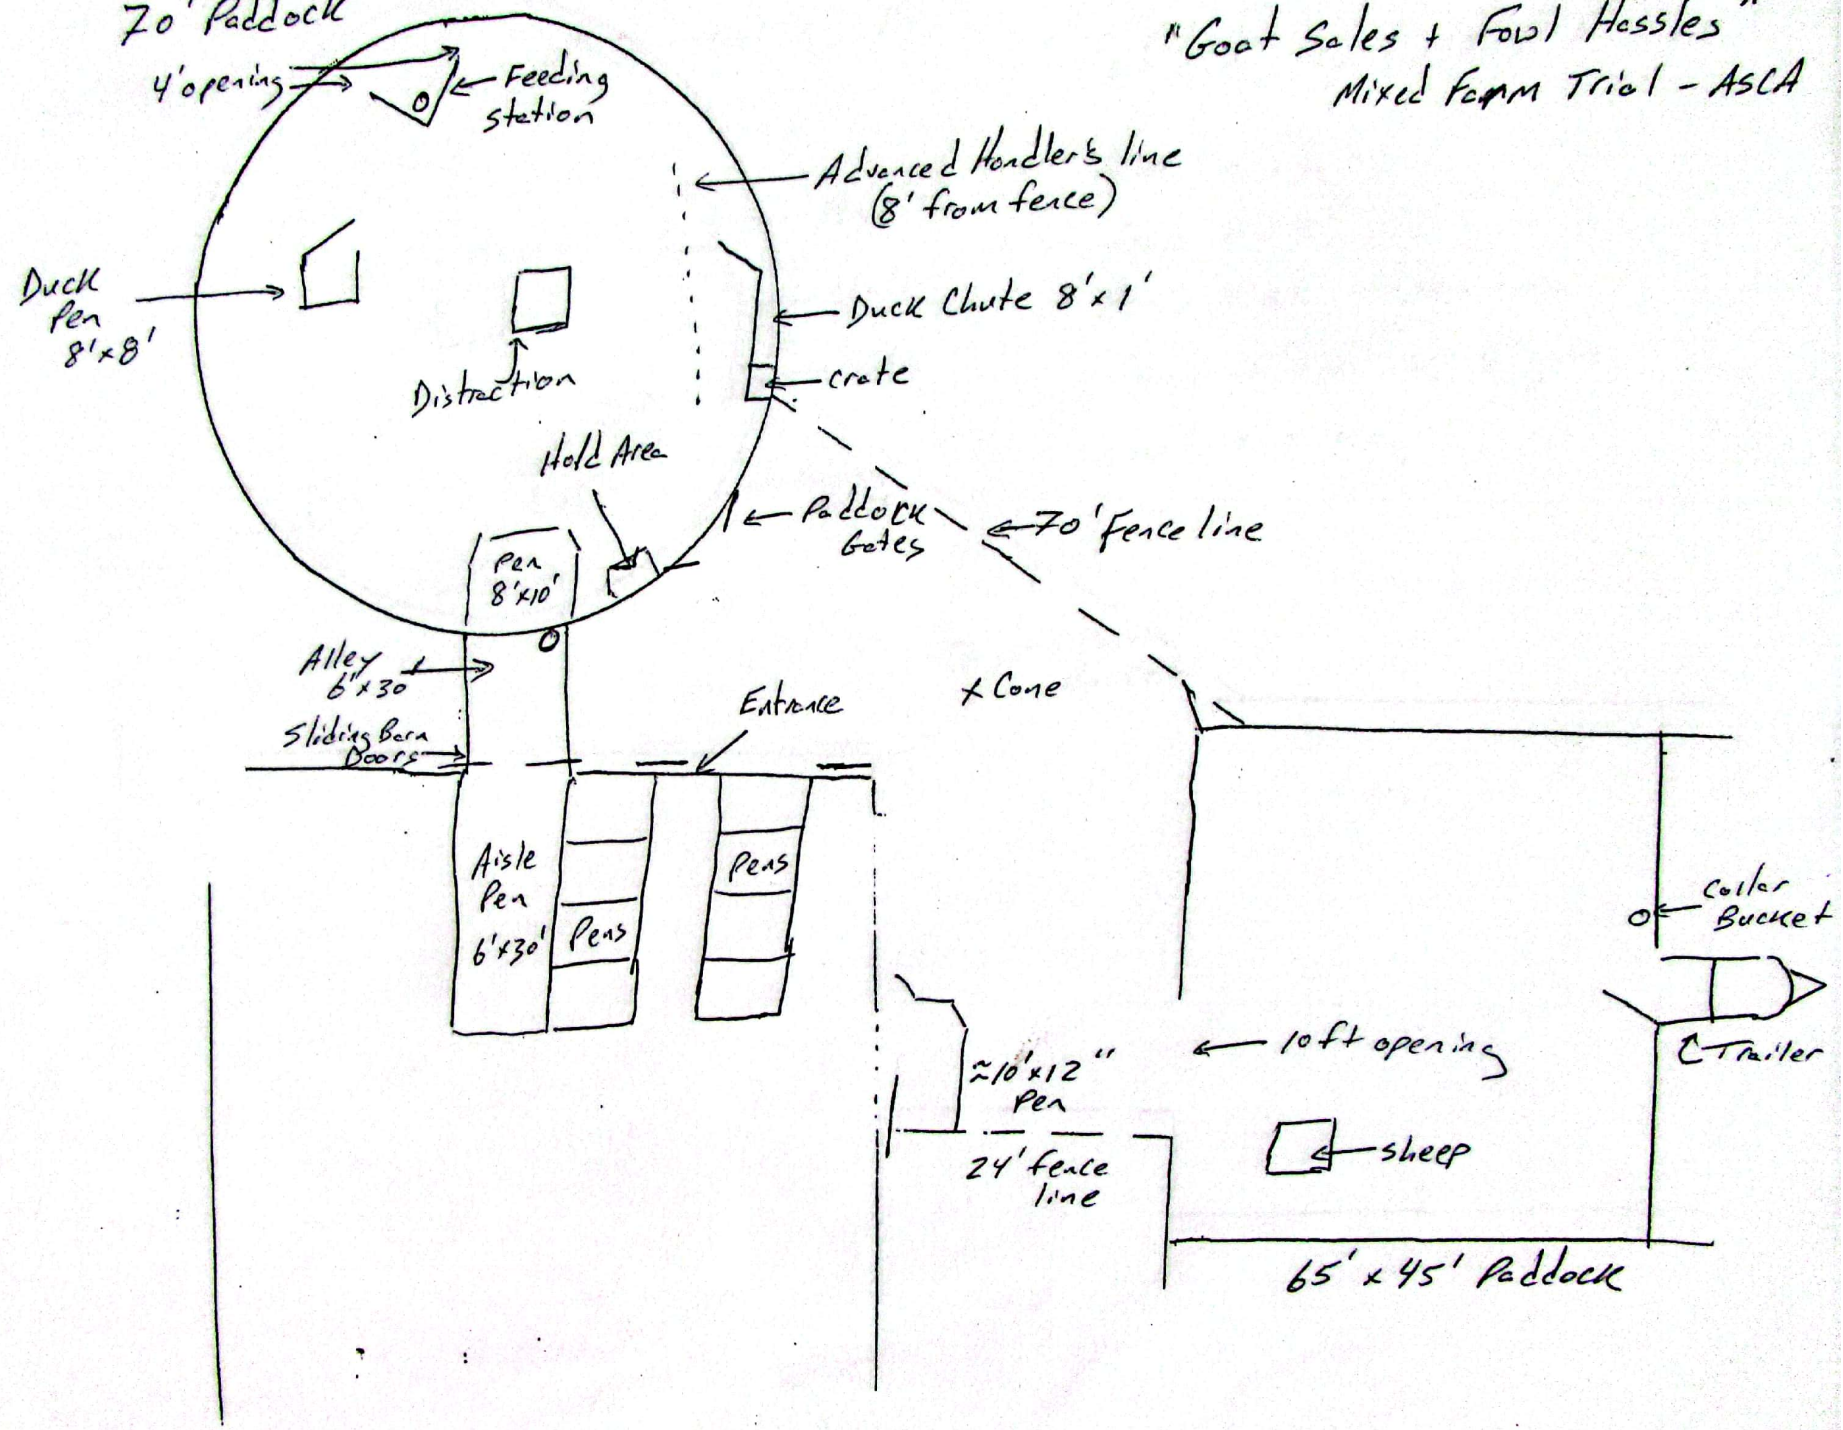 70' Paddock
"Goat Sales + Fowl Hassles"
Mixed Farm Trial - ASCA
4' opening
Feeding
station
Advanced Handler's line
(8' from fence)
Duck
Pen
8'x8'
Duck Chute 8'x1'
Distraction
crate
Hold Area
Paddock
Gates
70' Fence line
Pen
8'x10'
Alley
6'x30
Sliding Barn
Doors
Entrance
x Cone
Aisle
Pen
6'x30'
Pens
Pens
Collar
Bucket
10ft opening
Trailer
≈10'x12"
Pen
sheep
24' fence
line
65' x 45' Paddock